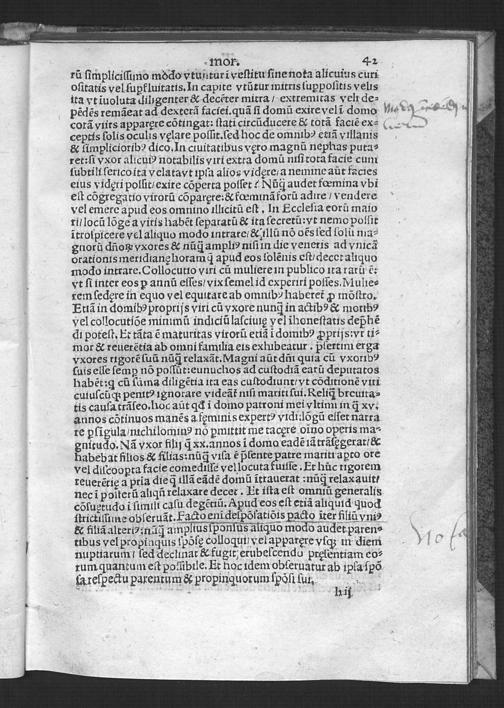 mor. 42
rū simplicissimo modo vtuntur i vestitu sine nota alicuius curi
ositatis vel supfluitatis. In capite vtūtur mitris suppositis velis
ita vt iuoluta diligenter & decēter mitra / extremitas veli de-
pēdēs remāeat ad dexterā faciei. quā si domū exire vel ī domo
corā viris apparęre cōtingat: stati circūducere & totā faciē ex-
ceptis solis oculis vęlare possit. sed hoc de omnibꝰ etiā villanis
& simplicioribꝰ dico. In ciuitatibus vęro magnū nephas puta-
ret: si vxor alicuiꝰ notabilis viri extra domū nisi tota facie cum
subtili serico ita velata vt ipsa alios vidęre / a nemine aūt facies
eius vidęri possit / exire cōperta posset. Nūq̄ audet fœmina vbi
est cōgregatio virorū cōparęre: & fœminā forū adire / vendere
vel emere apud eos omnino illicitū est. In Ecclesia eorū maio
ri / locū lōge a viris habēt separatū & ita secretū: vt nemo possit
ītrospicere vel aliquo modo intrare / & illū nō oēs sed solū ma-
gnorū dn̄oꝝ vxores & nūq̄ ampliꝰ nisi in die veneris ad vnicā
orationis meridianę horam q̄ apud eos solēnis est / decet aliquo
modo intrare. Collocutio viri cū muliere in publico ita rarū ē:
vt si inter eos p annū esses / vix semel id experiri posses. Mulie-
rem sedęre in equo vel equitare ab omnibꝰ haberet ꝓ mōstro.
Etiā in domibꝰ proprijs viri cū vxore nunq̄ in actibꝰ & moribꝰ
vel collocutiōe minimū indiciū lasciuię vel īhonestatis dep̄hē
di potest. Et tāta ē maturitas virorū etiā ī domibꝰ ꝓprijs: vt ti-
mor & reuerētia ab omni familia eis exhibeatur. p̄sertim erga
vxores rigorē suū nūq̄ relaxāt. Magni aūt dn̄i quia cū vxoribꝰ
suis esse semp nō possūt: eunuchos ad custodiā earū deputatos
habēt: q̄ cū sūma diligētia ita eas custodiunt: vt cōditionē viri
cuiuscūq̄ penitꝰ ignorare videāt nisi mariti sui. Reliq̄ breuita-
tis causa trāseo. hoc aūt qd̄ ī domo patroni mei vltimi in q̄ xv.
annos cōtinuos manēs a fęminis expertꝰ vidi: lōgū esset narra
re p sīgula / nichilominꝰ nō pmittit me tacęre oīno operis ma-
gnitudo. Nā vxor filij q̄ xx. annos ī domo eadē iā trāsęgerat / &
habebat filios & filias: nūq̄ visa ē p̄sente patre mariti apto ore
vel discoopta facie comedisse vel locuta fuisse. Et hūc rigorem
reuerētię a pria die q̄ illā eādē domū ītrauerat: nūq̄ relaxauit /
nec ī posterū aliqn̄ relaxare decet. Et ista est omniū generalis
cōsuętudo ī simili casu degētiū. Apud eos est etiā aliquid quod
strictissime obseruāt. Facto eni despōsatiōis pacto īter filiū vniꝰ
& filiā alteriꝰ: nūq̄ amplius sponsus aliquo modo audet paren-
tibus vel propinquis spōsę colloqui / vel apparęre vsq; in diem
nuptiarum / sed declinat & fugit: erubescendo pręsentiam eo-
rum quantum est possibile. Et hoc idem obseruatur ab ipsa spō
sa respectu parentum & propinquorum spōsi sui.
h ij
Nota